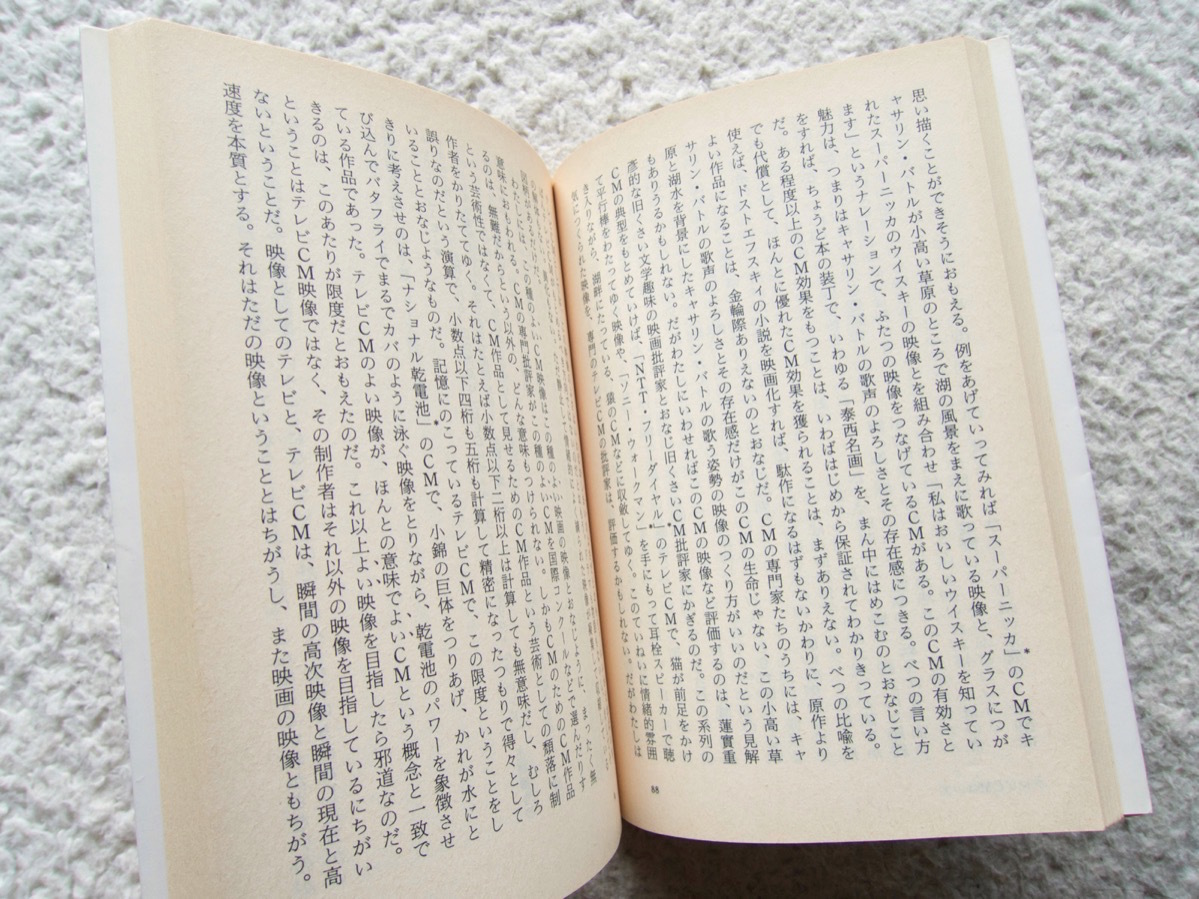 思い描くことができそうにおもえる。例をあげていってみれば「スーパーニッカ」*のCMでキ
ャサリン・バトルが小高い草原のところで湖の風景をまえに歌っている映像と、グラスにつが
れたスーパーニッカのウイスキーの映像とを組み合わせ「私はおいしいウイスキーを知ってい
ます」というナレーションで、ふたつの映像をつなげているCMがある。このCMの有効さと
魅力は、つまりはキャサリン・バトルの歌声のよろしさとその存在感につきる。べつの言い方
をすれば、ちょうど本の装丁で、いわゆる「泰西名画」を、まん中にはめこむのとおなじこと
だ。ある程度以上のCM効果をもつことは、いわばはじめから保証されてわかりきっている。
でも代償として、ほんとに優れたCM効果を獲られることは、まずありえない。べつの比喩を
使えば、ドストエフスキィの小説を映画化すれば、駄作になるはずもないかわりに、原作より
よい作品になることは、金輪際ありえないのとおなじだ。CMの専門家たちのうちには、キャ
サリン・バトルの歌声のよろしさとその存在感だけがこのCMの生命じゃない、この小高い草
原と湖水を背景にしたキャサリン・バトルの歌う姿勢の映像のつくり方がいいのだという見解
もありうるかもしれない。だがわたしにいわせればこのCMの映像など評価するのは、蓮實重
彥的な旧くさい文学趣味の映画批評家とおなじ旧くさいCM批評家にかぎるのだ。この系列の
CMの典型をもとめていけば、「NTT・フリーダイヤル」*のテレビCMで、猫が前足をかけ
て平行棒をわたってゆく映像や、「ソニー・ウォークマン」*を手にもって耳栓スピーカーで聴
きいりながら、湖畔にたっている、猿のCMなどに収斂してゆく。このていねいに情緒的雰囲
気につくられた映像を、専門のテレビCMの批評家は、評価するかもしれない。だがわたしは
88
わたしには、この種のよいCM映像はこの種のよい映画の映像とおなじように、まったく無
意味におもわれる。CMの専門批評家がこの種のよいCMを国際コンクールなどで選んだりす
るのは、無難だからという以外の、どんな意味もつけられない。しかもCM作品のためのCM作品
という芸術性ではなくて、CM作品として見せるためのCM作品という芸術としての類落に制
作者をかりたててゆく。それはたとえば小数点以下二桁以上は計算しても無意味だし、むしろ
誤りなのだという演算で、小数点以下四桁も五桁も計算して精密になったつもりで得々として
いることとおなじようなものだ。記憶にのこっているテレビCMで、この限度ということをし
きりに考えさせのは、「ナショナル乾電池」*のCMで、小錦の巨体をつりあげ、かれが水にと
び込んでバタフライでまるでカバのように泳ぐ映像をとりながら、乾電池のパワーを象徴させ
ている作品であった。テレビCMのよい映像が、ほんとの意味でよいCMという概念と一致で
きるのは、このあたりが限度だとおもえたのだ。これ以上よい映像を目指したら邪道なのだ。
ということはテレビCM映像ではなく、その制作者はそれ以外の映像を目指しているにちがい
ないということだ。映像としてのテレビと、テレビCMは、瞬間の高次映像と瞬間の現在と高
速度を本質とする。それはただの映像ということとはちがうし、また映画の映像ともちがう。